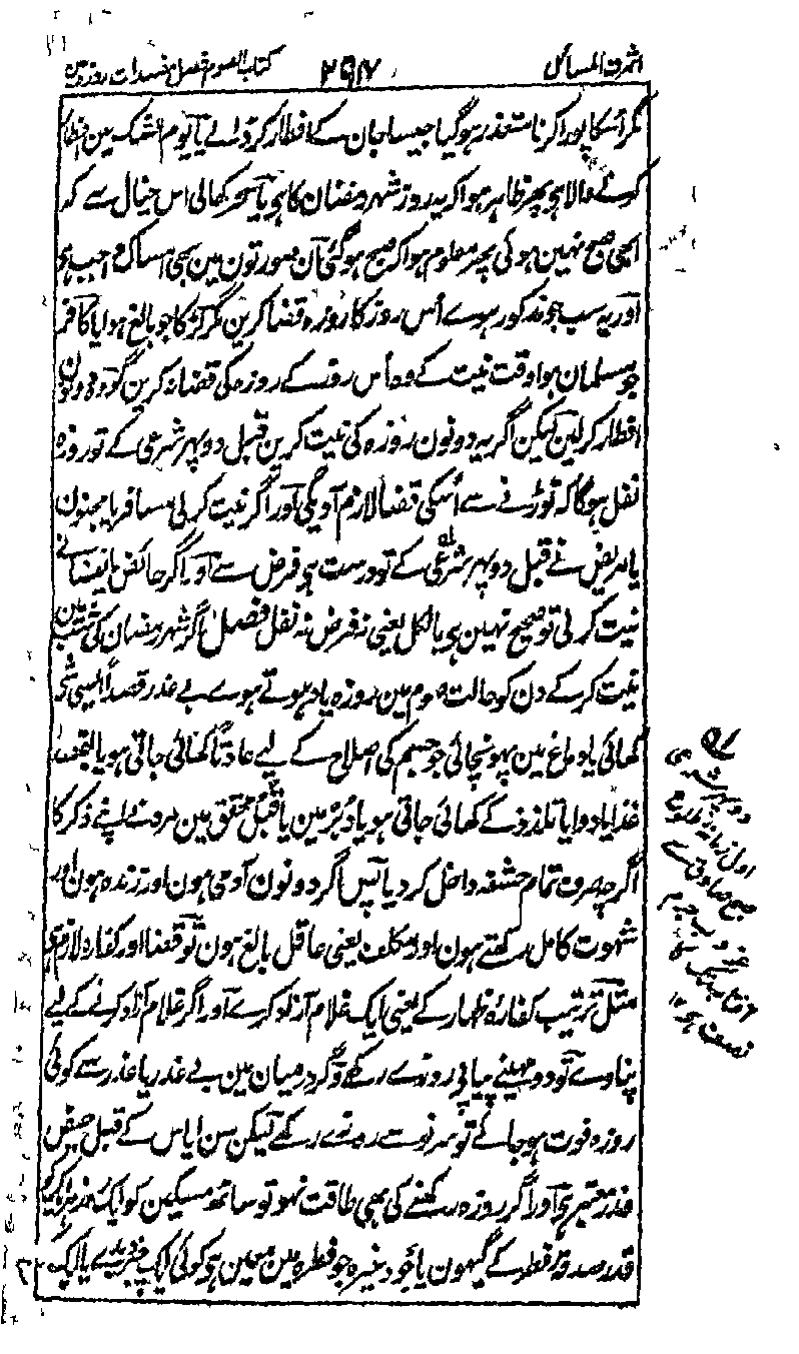 اشرف المسائل ۲۹۷ کتاب الصوم فصل مفسدات روزہ مین
مگر اُسکا پورا کرنا متعذر ہوگیا جیسا جان کے افطار کر ڈالے یا یوم الشک مین افطار
کرنے والا ہو پھر ظاہر ہوا کہ یہ روز شہر رمضان کا ہی یا سحر کھالی اس خیال سے کہ
ابھی صبح نہین ہوئی پھر معلوم ہوا کہ صبح ہوگئی ان صورتون مین بھی امساک واجب ہو
اور یہ سب جو مذکور ہوے اُس روز کا روزہ قضا کرین مگر لڑکا جو بالغ ہوا یا کافر
جو مسلمان ہوا وقت نیت کے وہ اُس روز کے روزہ کی قضا نہ کرین گو وہ دونون
افطار کر لین لیکن اگر یہ دونون روزہ کی نیت کرین قبل دوپہر شرعی کے تو روزہ
نفل ہوگا کہ توڑنے سے اُسکی قضا لازم آویگی اور اگر نیت کر لی مسافر یا مجنون
یا مریض نے قبل دوپہر شرعی کے تو درست ہی فرض سے اور اگر حائض یا نفسا نے
نیت کر لی تو صحیح نہین ہی بالکل یعنی نہ فرض نہ نفل فصل اگر شہر رمضان کی شب مین
نیت کر کے دن کو حالت صوم مین روزہ یاد ہوتے ہوے بے عذر قصداً ایسی شے
کھائی یا دماغ مین پہونچائی جو جسم کی اصلاح کے لیے عادتاً کھائی جاتی ہو یا بقصد
غذا یا دوا یا تلذذ کے کھائی جاتی ہو یا دُبُر مین یا قُبُل محقق مین مرد نے اپنے ذکر کا
اگرچہ صرف تمام حشفہ داخل کر دیا پس اگر دونون آدمی ہون اور زندہ ہون اور
شہوت کامل رکھتے ہون اور مکلف یعنی عاقل بالغ ہون تو قضا اور کفارہ لازم ہی
مثل ترتیب کفارہ ظہار کے یعنی ایک غلام آزاد کرے اور اگر غلام آزاد کرنے کے لیے
نپاوے تو دو مہینے پیاپی روزے رکھے و گر درمیان مین بے عذر یا عذر سے کوئی
روزہ فوت ہو جائے تو سر نوسے روزے رکھے لیکن سن ایاس کے قبل حیض
عذر معتبر ہی اور اگر روزہ رکھنے کی بھی طاقت نہو تو ساٹھ مسکین کو ایک
قدر صدقہ فطر کے گیہون یا جَو وغیرہ جو فطرہ مین معین ہو کوئی ایک چیز دیدے یا ایک
دوپہر شرعی
اول زمانہ طلوع
صبح صادق سے
غروب جرم
آفتاب تک کا
نصف ہی ۱۲